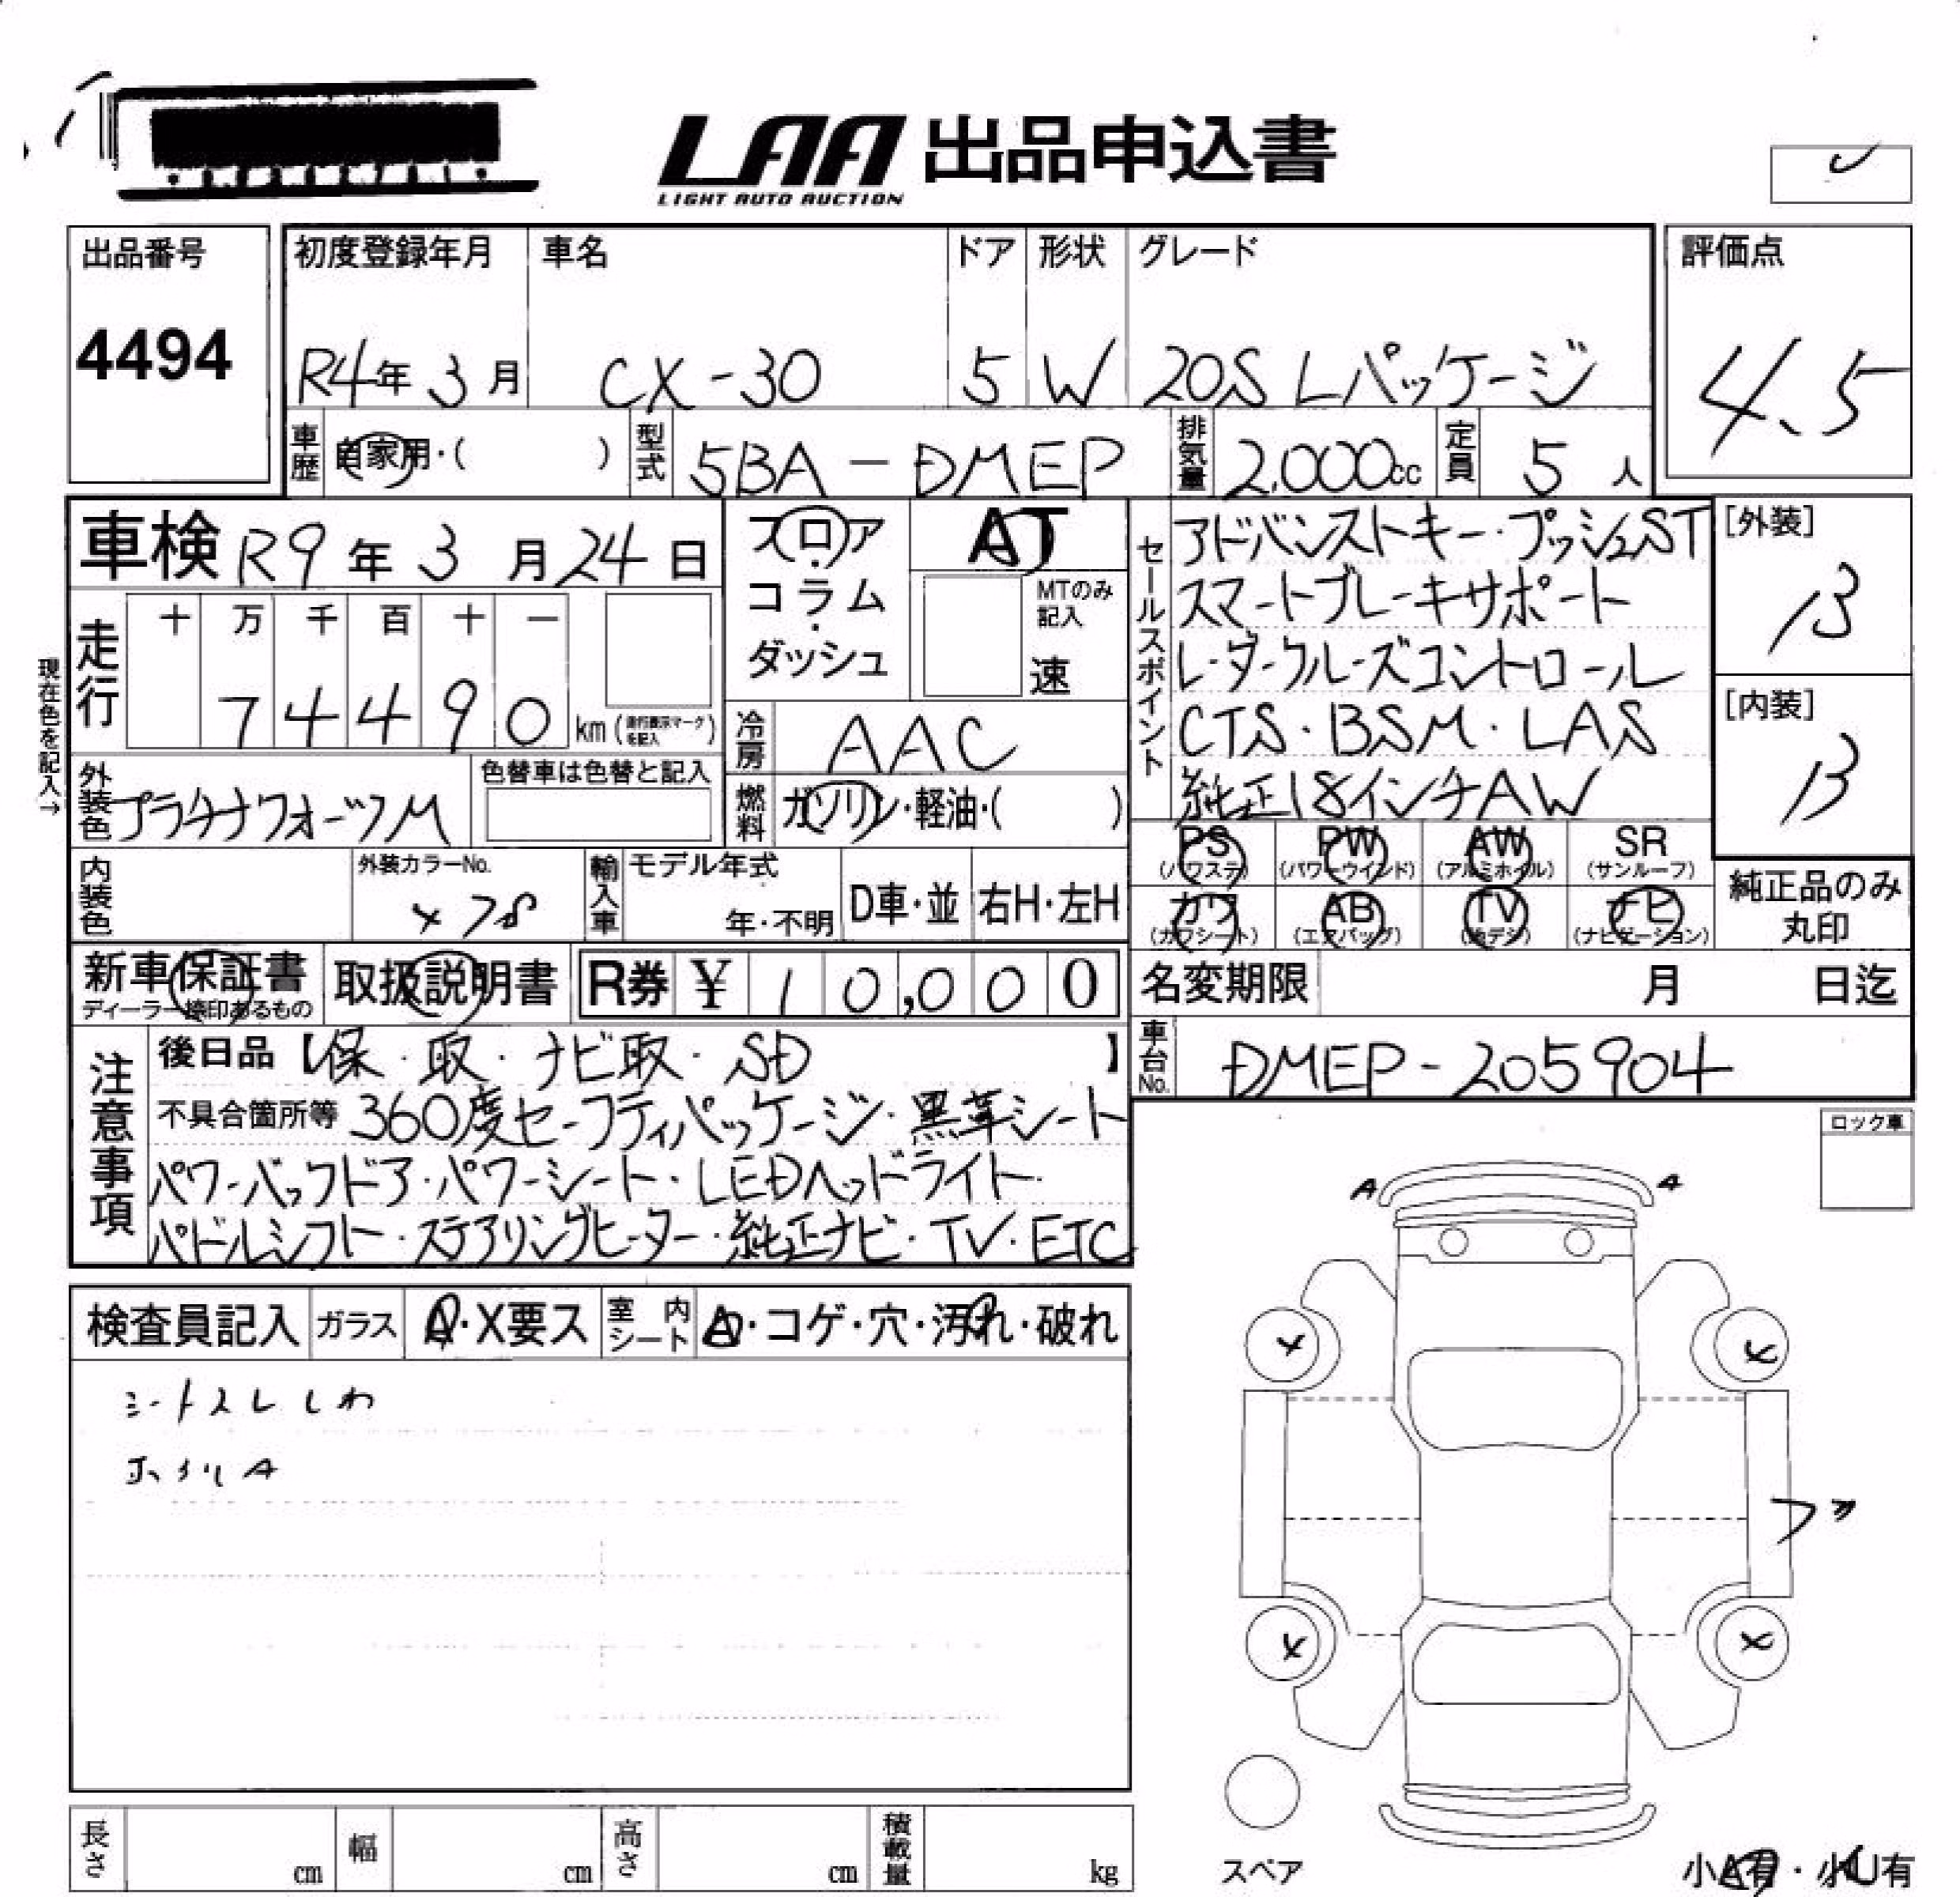 LAA 出品申込書
LIGHT AUTO AUCTION
出品番号
4494
初度登録年月 車名 ドア 形状 グレード
R4年 3月 CX-30 5 W 20S Lパッケージ
評価点
4.5
車歴 自家用・( ) 型式 5BA-DMEP 排気量 2,000cc 定員 5人
車検 R9年 3月 24日
フロア・コラム・ダッシュ
AT
MTのみ記入
速
セールスポイント
アドバンストキー・プッシュST
スマートブレーキサポート
レーダークルーズコントロール
CTS・BSM・LAS
純正18インチAW
[外装]
B
[内装]
B
走行 十 万 千 百 十 一
74490 km (走行表示マークを記入)
現在色を記入→
冷房 AAC
外装色 プラチナクォーツM
色替車は色替と記入
燃料 ガソリン・軽油・( )
PS PW AW SR
(パワステ) (パワーウインド) (アルミホイル) (サンルーフ)
カワ AB TV ナビ
(カワシート) (エアバッグ) (地デジ) (ナビゲーション)
純正品のみ丸印
内装色 外装カラーNo.
47S
輸入車 モデル年式
年・不明 D車・並 右H・左H
新車保証書 取扱説明書 R券 ¥ 10,000
ディーラー捺印あるもの
名変期限 月 日迄
車台No. DMEP-205904
注意事項
後日品【保・取・ナビ取・SD】
不具合箇所等 360度セーフティパッケージ・黒革シート
パワーバックドア・パワーシート・LEDヘッドライト
パドルシフト・ステアリングヒーター・純正ナビ・TV・ETC
ロック車
A A
検査員記入 ガラス A・X要ス 室内シート A・コゲ・穴・汚れ・破れ
シートスレ しわ
ホイルA
X X
X X
スペア
小A有・小U有
長さ cm 幅 cm 高さ cm 積載量 kg